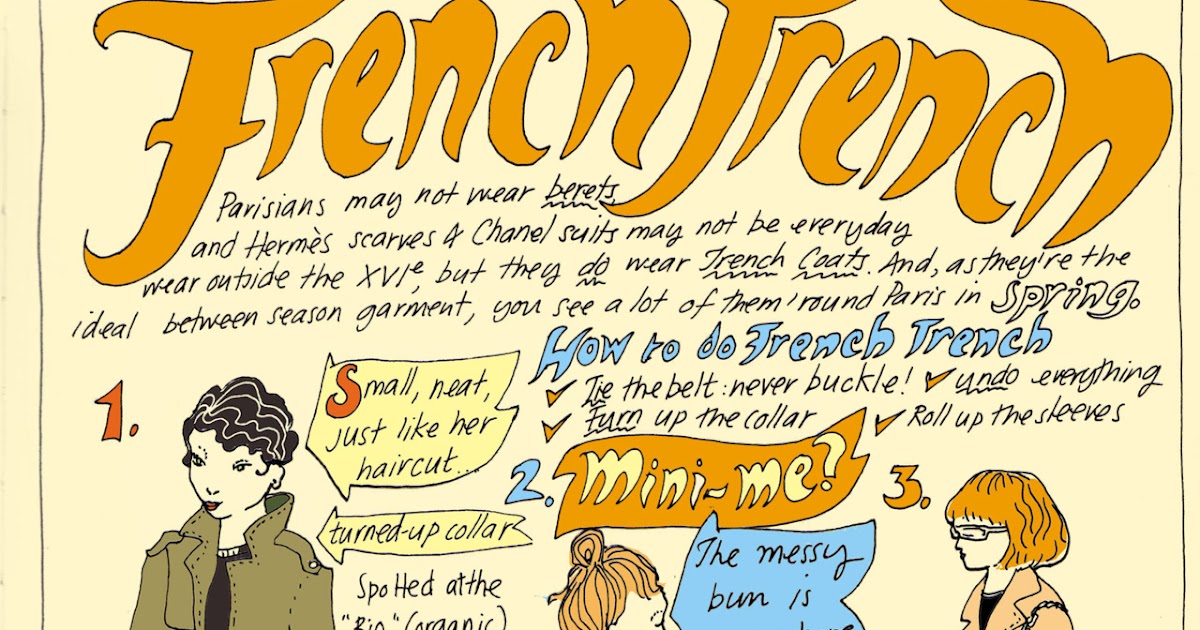 French Trench
Parisians may not wear berets
and Hermès scarves & Chanel suits may not be everyday
wear outside the XVIe, but they do wear Trench Coats. And, as they're the
ideal between season garment, you see a lot of them 'round Paris in Spring.
How to do French Trench
✓ Tie the belt: never buckle! ✓ undo everything
✓ turn up the collar ✓ Roll up the sleeves
1.
Small, neat,
just like her
haircut...
turned-up collar
Spotted at the
"Bio" (organic)
2.
Mini-me?
The messy
bun is
3.